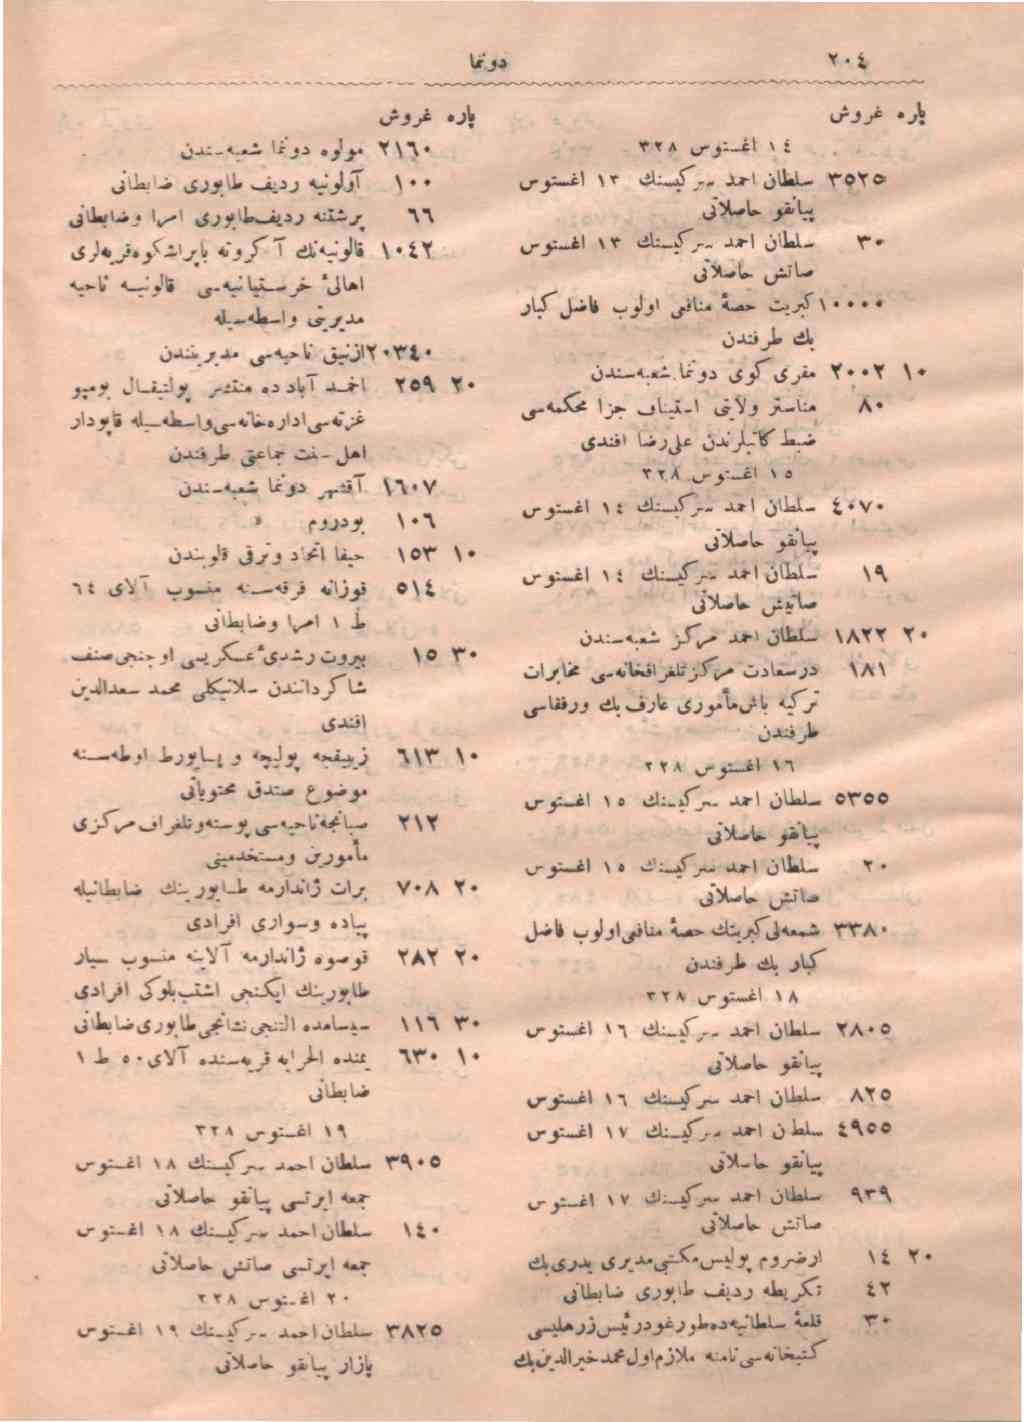 ٢٠٤ دونما
پاره غروش
١٤ اغستوس ٣٢٨
٣٥٢٥ سلطان احمد سركيسنك ١٣ اغستوس
پيانقو حاصلاتى
٣٠ سلطان احمد سركيسنك ١٣ اغستوس
صاتش حاصلاتى
١٠٠٠٠ كبريت حصۀ منافعى اولوب فاضل كبار
بك طرفندن
١٠ ٢٠٠٢ مقرى كوى دونما شعبه‌سندن
٨٠ مناستر ولايتى استيناف جزا محكمه‌سى
ضبط كاتبلرندن على رضا افندى
١٥ اغستوس ٣٢٨
٤٠٧٠ سلطان احمد سركيسنك ١٤ اغستوس
پيانقو حاصلاتى
١٩ سلطان احمد سركيسنك ١٤ اغستوس
صاتيش حاصلاتى
٢٠ ١٨٢٢ سلطان احمد مركز شعبه‌سندن
١٨١ درسعادت مركز تلغرافخانه‌سى مخابرات
تركيه باش مأمورى عارف بك ورفقاسى
طرفندن
١٦ اغستوس ٣٢٨
٥٣٥٥ سلطان احمد سركيسنك ١٥ اغستوس
پيانقو حاصلاتى
٢٠ سلطان احمد سركيسنك ١٥ اغستوس
صاتش حاصلاتى
٣٣٨٠ شمعه‌لى كبريتك حصۀ منافعى اولوب فاضل
كبار بك طرفندن
١٨ اغستوس ٣٢٨
٢٨٠٥ سلطان احمد سركيسنك ١٦ اغستوس
پيانقو حاصلاتى
٨٢٥ سلطان احمد سركيسنك ١٦ اغستوس
٤٩٥٥ سلطان احمد سركيسنك ١٧ اغستوس
پيانقو حاصلاتى
٩٣٩ سلطان احمد سركيسنك ١٧ اغستوس
صاتش حاصلاتى
٢٠ ١٤ ارضروم پوليس مكتبى مديرى بدرى بك
٤٢ تكريطه رديف طابورى ضابطانى
٣٠ قلعۀ سلطانيه‌ده طورغود رئيس زرهليسى
كتبخانه‌سى نامنه ملازم اول محمد خيرالدين بك
پاره غروش
٢١٦٠ مولوه دونما شعبه‌سندن
١٠٠ آولونيه رديف طابورى ضابطانى
٦٦ پرشتنه رديف طابورى امرا وضابطانى
١٠٤٢ قالونيه‌نك آكروته پاپراشكوه قريه‌لرى
اهالئ خرستيانيه‌سى قالونيه ناحيه
مديريتى واسطه‌سيله
٢٠٣٤٠ ازنيق ناحيه‌سى مديريتندن
٢٠ ٢٥٩ احمد آبادده منتشر پولتيقال بومپو
غزته‌سى اداره‌خانه‌سى واسطه‌سيله قاپودار
اهل سنت جماعتى طرفندن
١٦٠٧ آقشهر دونما شعبه‌سندن
١٠٦ بودروم »
١٠ ١٥٣ حيفا اتحاد وترقى قلوبندن
٥١٤ قوزانه فرقه‌سنه منسوب آلاى ٦٤
ط ١ امرا وضابطانى
٣٠ ١٥ بيروت رشدئ عسكريسى اوچنجى صنف
شاكرداندن سلانيكلى محمد سعدالدين
افندى
١٠ ٦١٣ زيبيقجه پوليچه و پساپورط اوطه‌سنه
موضوع صندق محتوياتى
٢١٢ صبانجه ناحيه‌سى پوسته وتلغراف مركزى
مأمورين ومستخدمينى
٢٠ ٧٠٨ برات ژاندارمه طابورينك ضابطانيله
پياده وسوارى افرادى
٢٠ ٢٨٢ قوصوه ژاندارمه آلاينه منسوب سيار
طابورينك ايكنجى اشتب بلوكى افرادى
٣٠ ١١٦ سيسامده التنجى نشانجى طابورى ضابطانى
١٠ ٦٣٠ يمنده الحرابه قريه‌سنده آلاى ٥٠ ط ١
ضابطانى
١٩ اغستوس ٣٢٨
٣٩٠٥ سلطان احمد سركيسنك ١٨ اغستوس
جمعه ايرتسى پيانقو حاصلاتى
١٤٠ سلطان احمد سركيسنك ١٨ اغستوس
جمعه ايرتسى صاتش حاصلاتى
٢٠ اغستوس ٣٢٨
٣٨٢٥ سلطان احمد سركيسنك ١٩ اغستوس
پازار پيانقو حاصلاتى